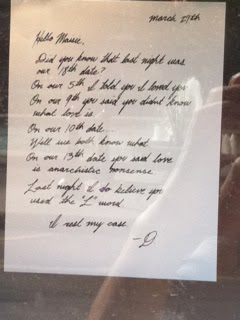 march 27th
Hello Massie,
Did you know that last night was
our 18th date?
On our 5th I told you I loved you
On our 9th you said you didnt know
what love is.
On our 10th date...
Well we both know what.
On our 13th date you said love
is anarchistic nonsense
Last night I do believe you
used the "L" word.
I rest my case
-D